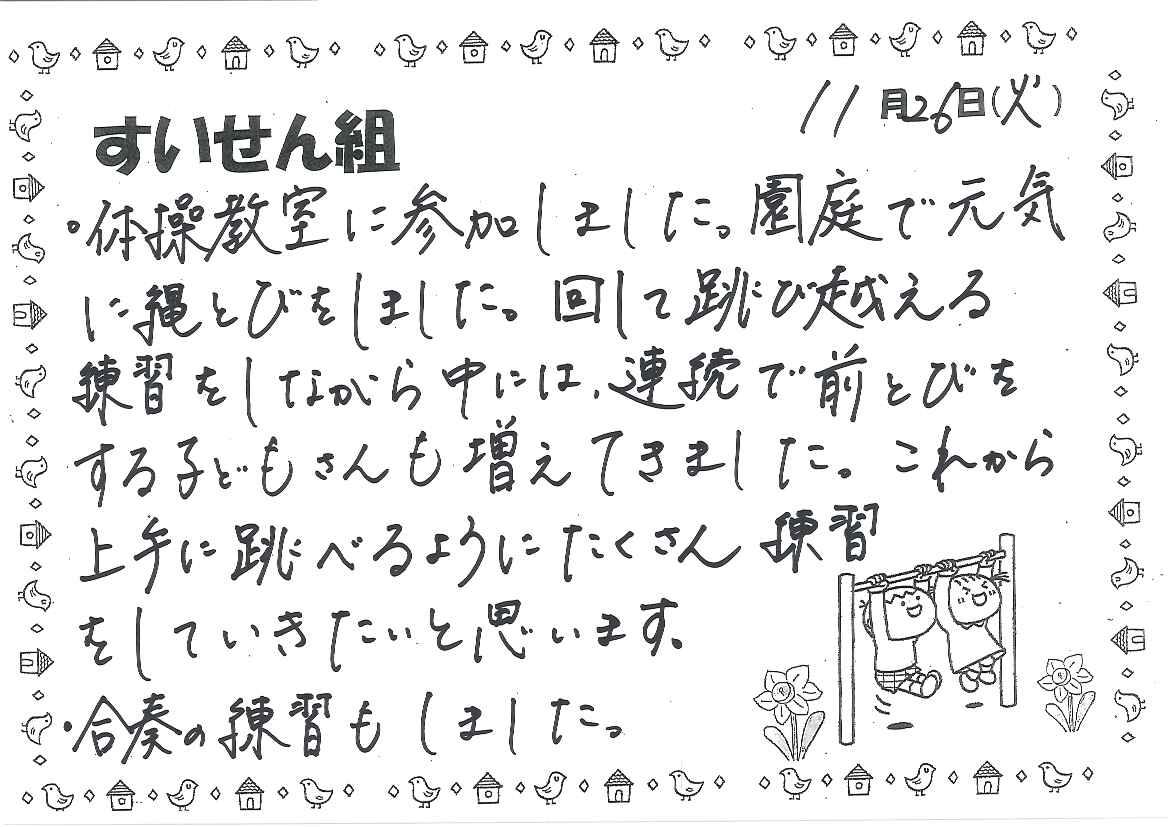 11月26日(火)
すいせん組
・体操教室に参加しました。園庭で元気
に縄とびをしました。回して跳び越える
練習をしながら中には、連続で前とびを
する子どもさんも増えてきました。これから
上手に跳べるようにたくさん練習
をしていきたいと思います。
・合奏の練習もしました。